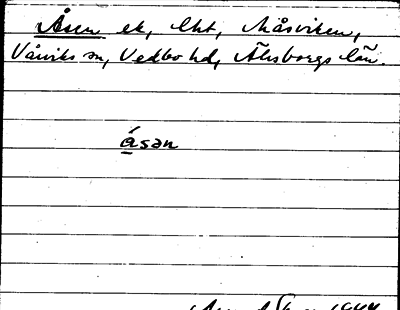 Åsen ek, lht, Måsviken,
Vårviks sn, Vedbo hd, Älvsborgs län.
åsan